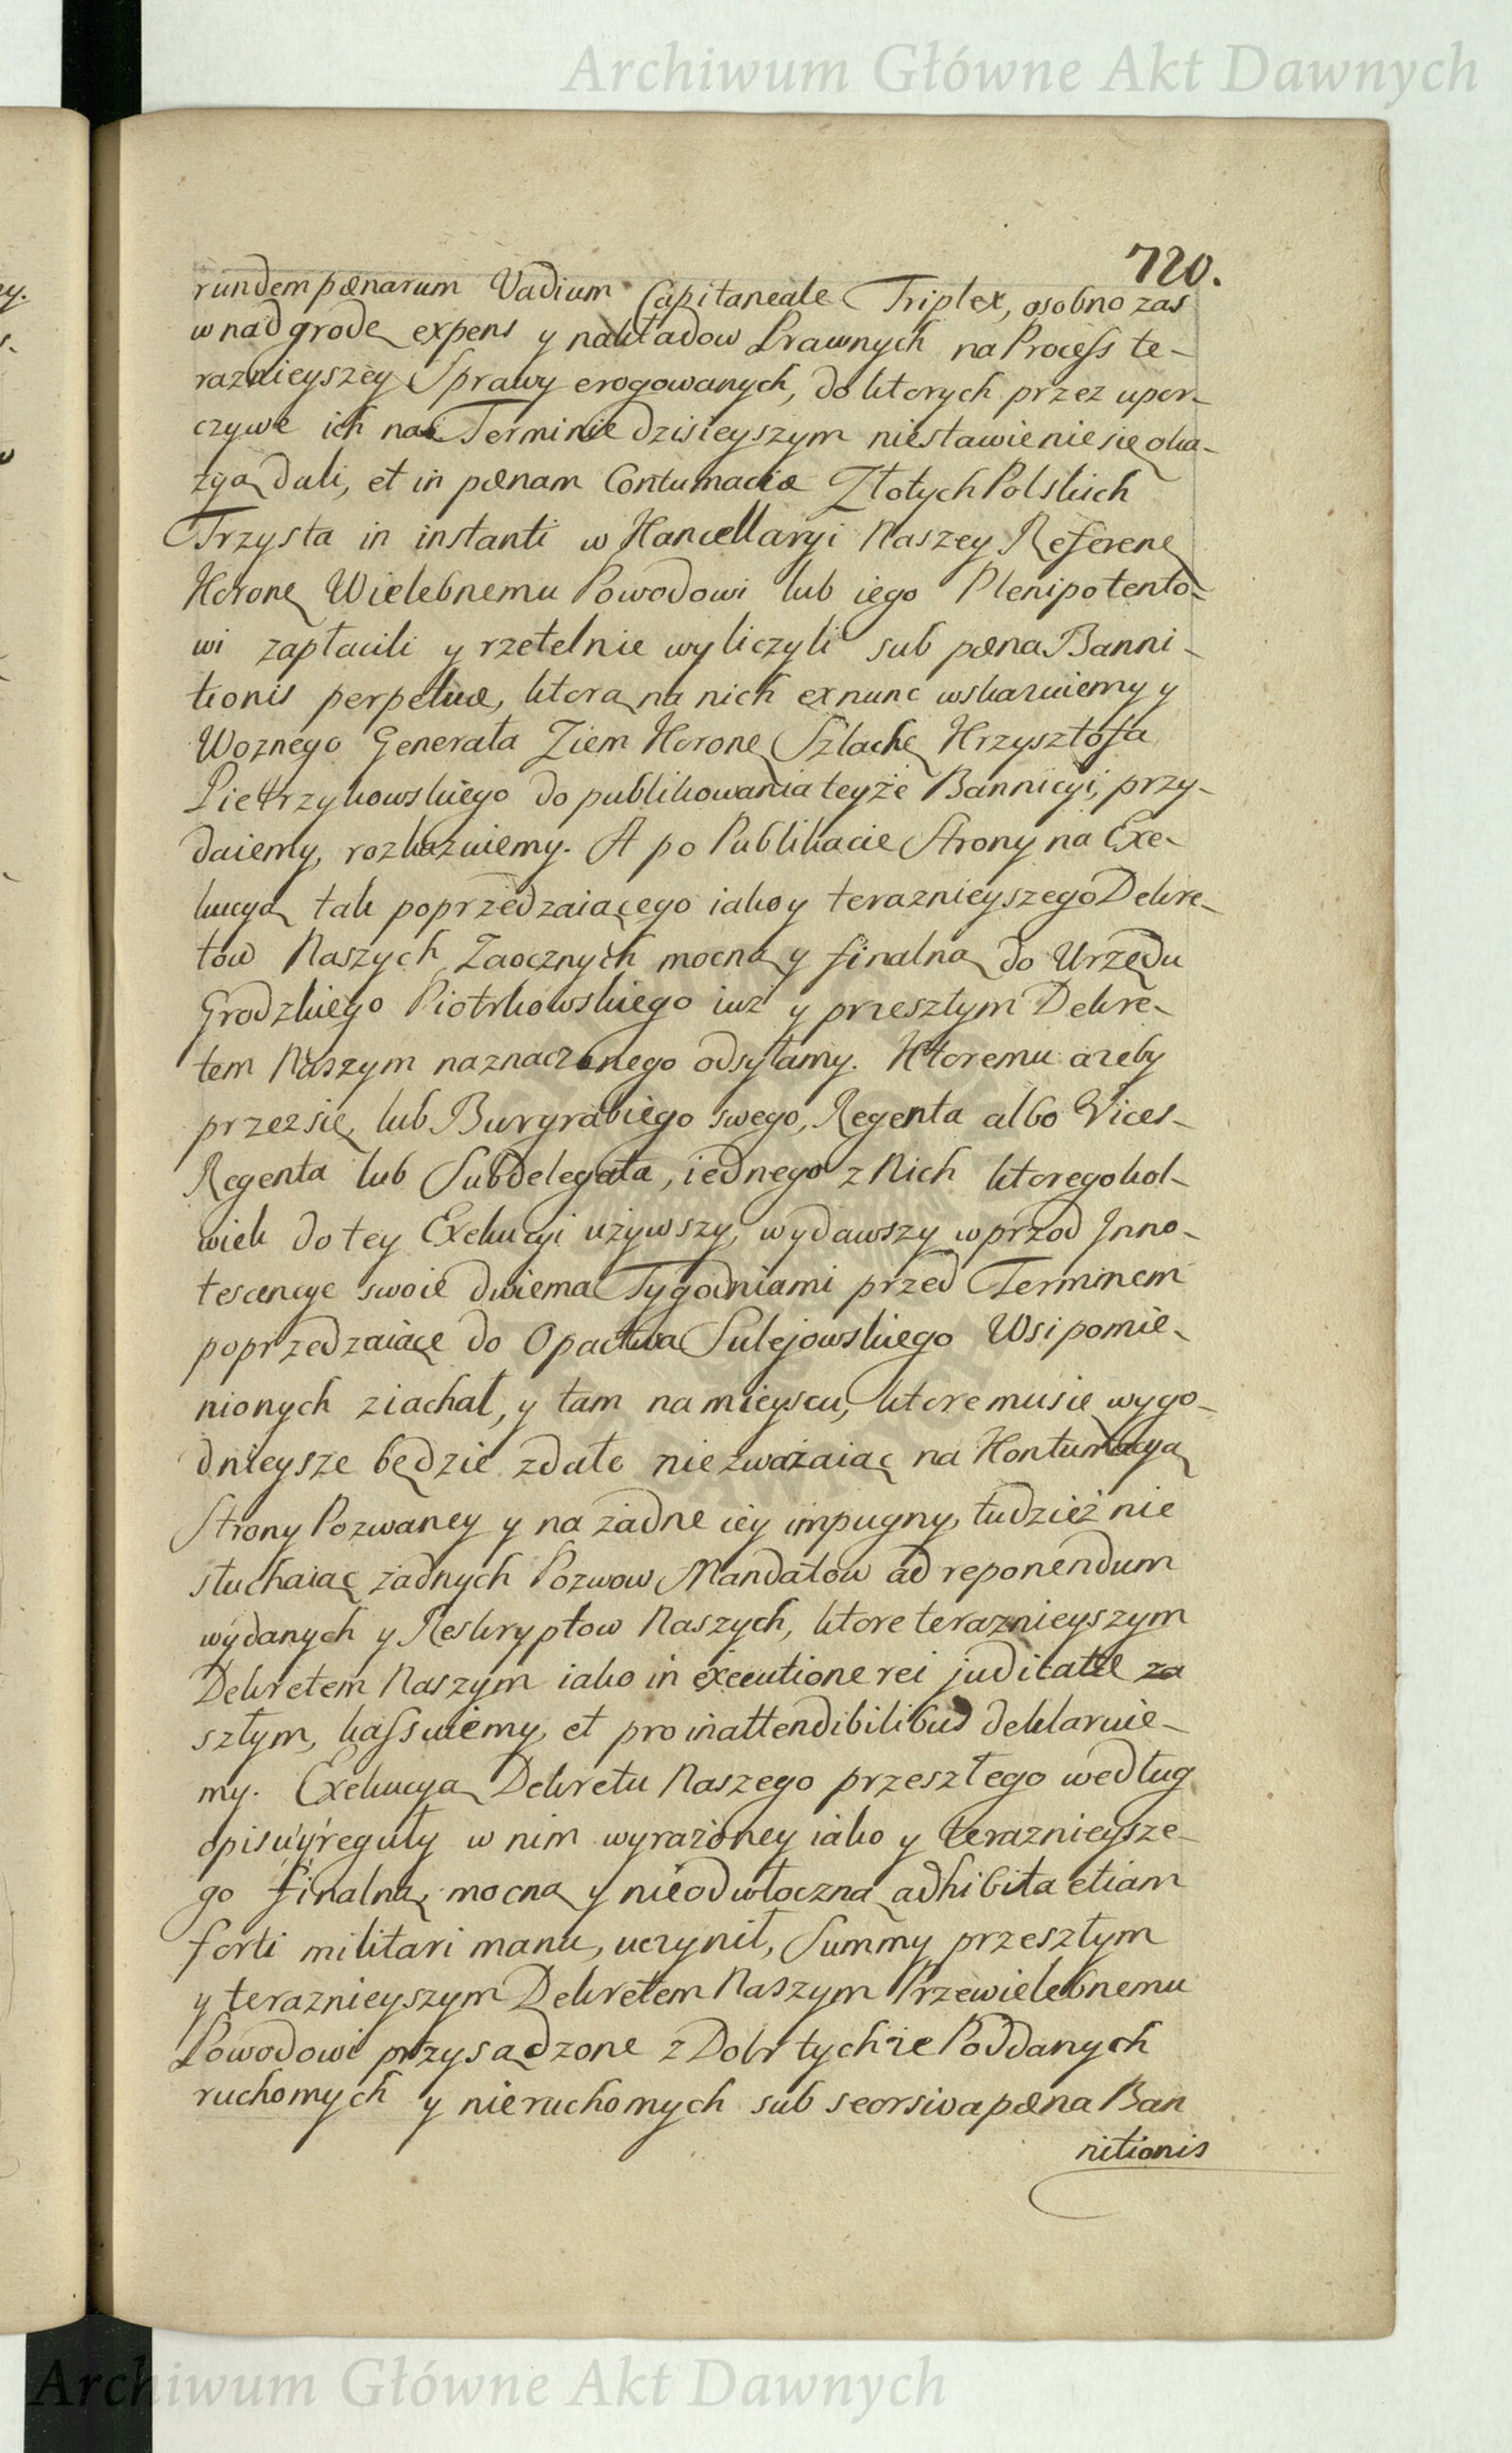 Archiwum Główne Akt Dawnych
720.
rundem pænarum Vadium Capitaneale Triplex, osobno zas
w nadgrodę expens y nakładow Prawnych na Process te-
raznieyszey Sprawy erogowanych, do ktorych przez upor-
czywe ich na Terminie dzisieyszym niestawienie się oka-
zyą dali, et in pænam Contumaciæ Złotych Polskich
Trzysta in instanti w Kancellaryi Naszey Referen
Koronę Wielebnemu Powodowi lub iego Plenipotento-
wi zapłacili y rzetelnie wyliczyli sub pæna Banni-
tionis perpetuæ, ktorą na nich ex nunc wskazuiemy y
Woznego Generała Ziem Koronę Szlachę Krzysztofa
Pietrzykowskiego do publikowania teyże Bannicyi, przy-
daiemy, rozkazuiemy. A po Publikacie Strony na Exe-
kucyą tak poprzedzaiącego iako y teraznieyszego Dekre-
tow Naszych Zaocznych mocną y finalną do Urzędu
Grodzkiego Piotrkowskiego iuż y przeszłym Dekre-
tem Naszym naznaczonego odsyłamy. Ktoremu ażeby
przez się lub Burgrabiego swego, Regenta albo Vices-
Regenta lub Subdelegata, iednego z Nich ktoregokol-
wiek do tey Exekucyi używszy, wydawszy wprzod Inno-
tescencye swoie dwiema Tygodniami przed Terminem
poprzedzaiącę do Opactwa Sulejowskiego Wsi pomie-
nionych ziachał, y tam na mieyscu, ktore mu się wygo-
dnieysze będzie zdało nie zważaiąc na Kontumacyą
Strony Pozwaney y na żadne iey impugny, tudzież nie
słuchaiąc żadnych Pozwow Mandatow ad reponendum
wydanych y Reskryptow Naszych, ktore teraznieyszym
Dekretem Naszym iako in executione rei judicatæ za
szłym, kassuiemy, et pro inattendibilibus deklaruie-
my. Exekucyą Dekretu Naszego przeszłego według
opisu y reguły w nim wyrażoney iako y teraznieysze-
go finalną, mocną y nieodwłoczną adhibita etiam
forti militari manu, uczynił, Summy przeszłym
y teraznieyszym Dekretem Naszym Przewielebnemu
Powodowi przysądzone z Dobr tychże Poddanych
ruchomych y nieruchomych sub seorsiva pæna Ban
nitionis
Archiwum Główne Akt Dawnych